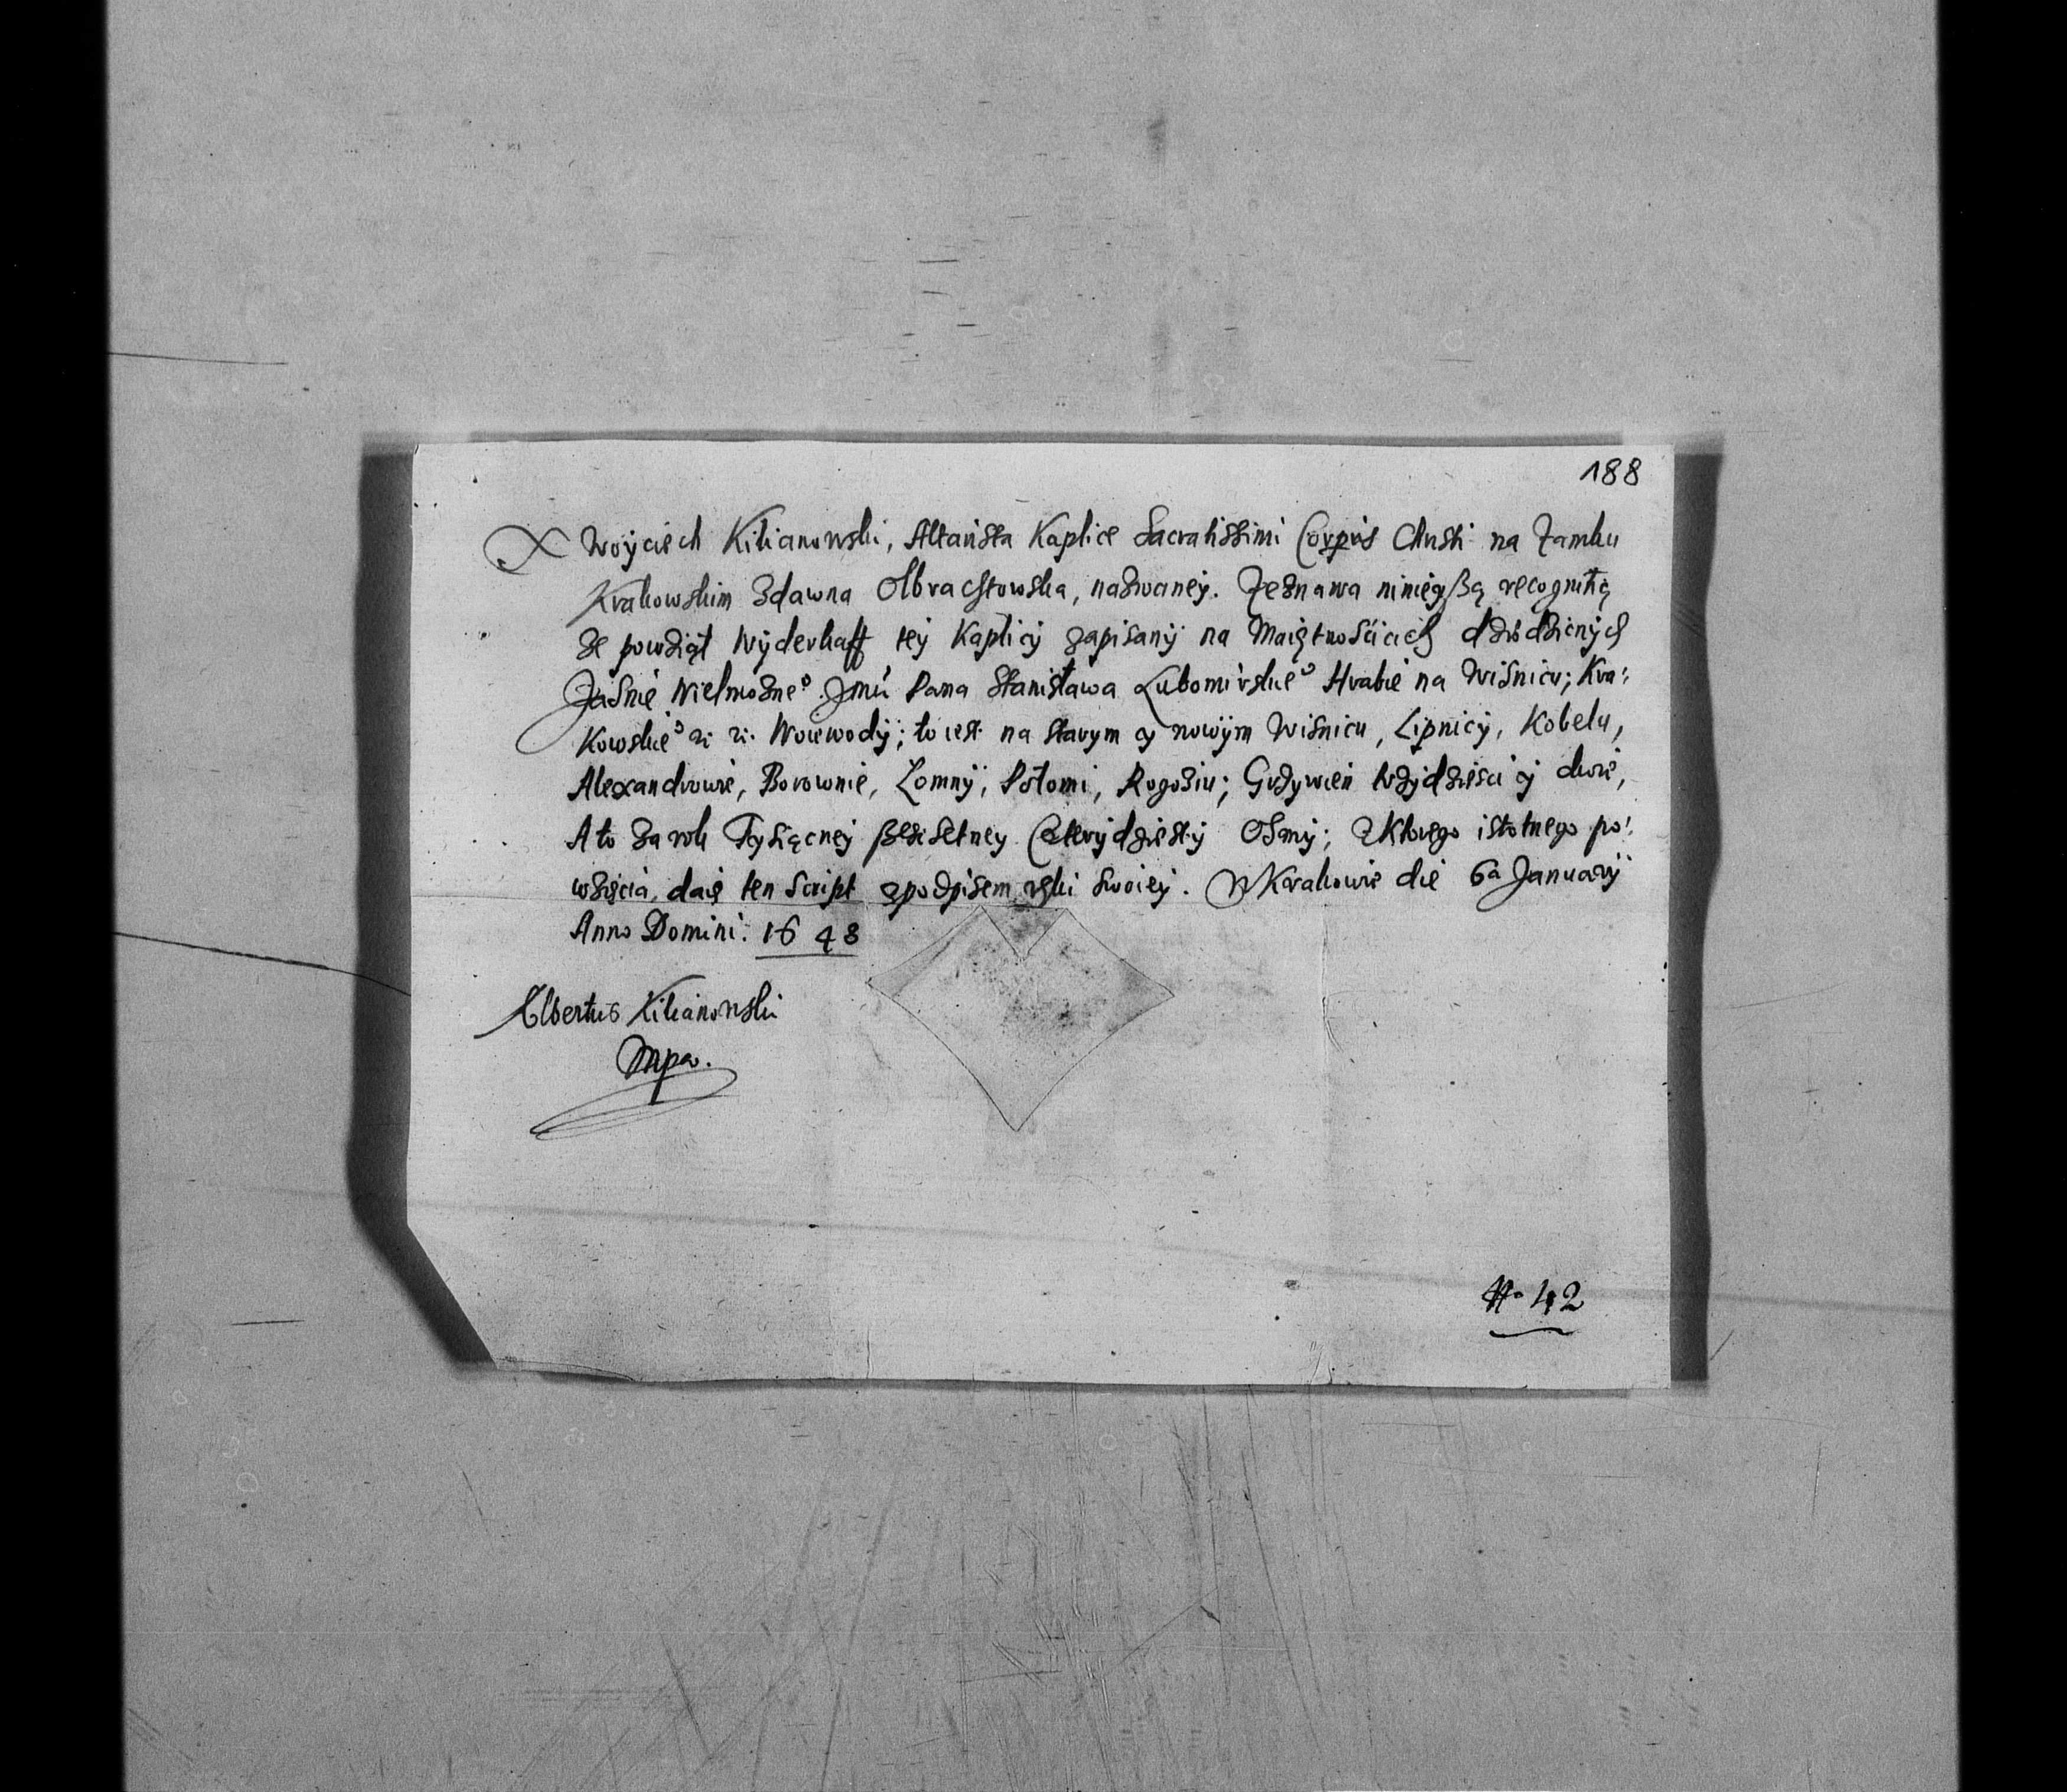 188
X Woyciech Kilianowski, Altarista Kaplice Sacratissimi Corpris Christi na Zamku
Krakowskim zdawna Olbrachtowska, nazwaney. Zeznawa ninieyßą recognitią
że powziął Wyderkaff tey Kaplicy zapisany na Maiętnościach dziedzicznych
Jaśnie Wielmożneo Jmci Pana Stanisława Lubomirskieo Hrabie na Wiśniczu; Kra:
kowskieo Woiewody; to iest na starym y nowym Wisniczu, Lipnicy, Kobelu,
Alexandrowie, Borownie, Łomny, Połomi, Rogoziu; Grzywień trzydzieści y dwie,
A to za rok Tysiącney ßescsetney Czterydziesty Osmy; z Ktorego istotnego po:
wzięcia, daię ten script z podpisem ręki swoiey. W Krakowie die 6a January
Anno Domini: 1648
Albertus Kilianowski
mpa.
No 42